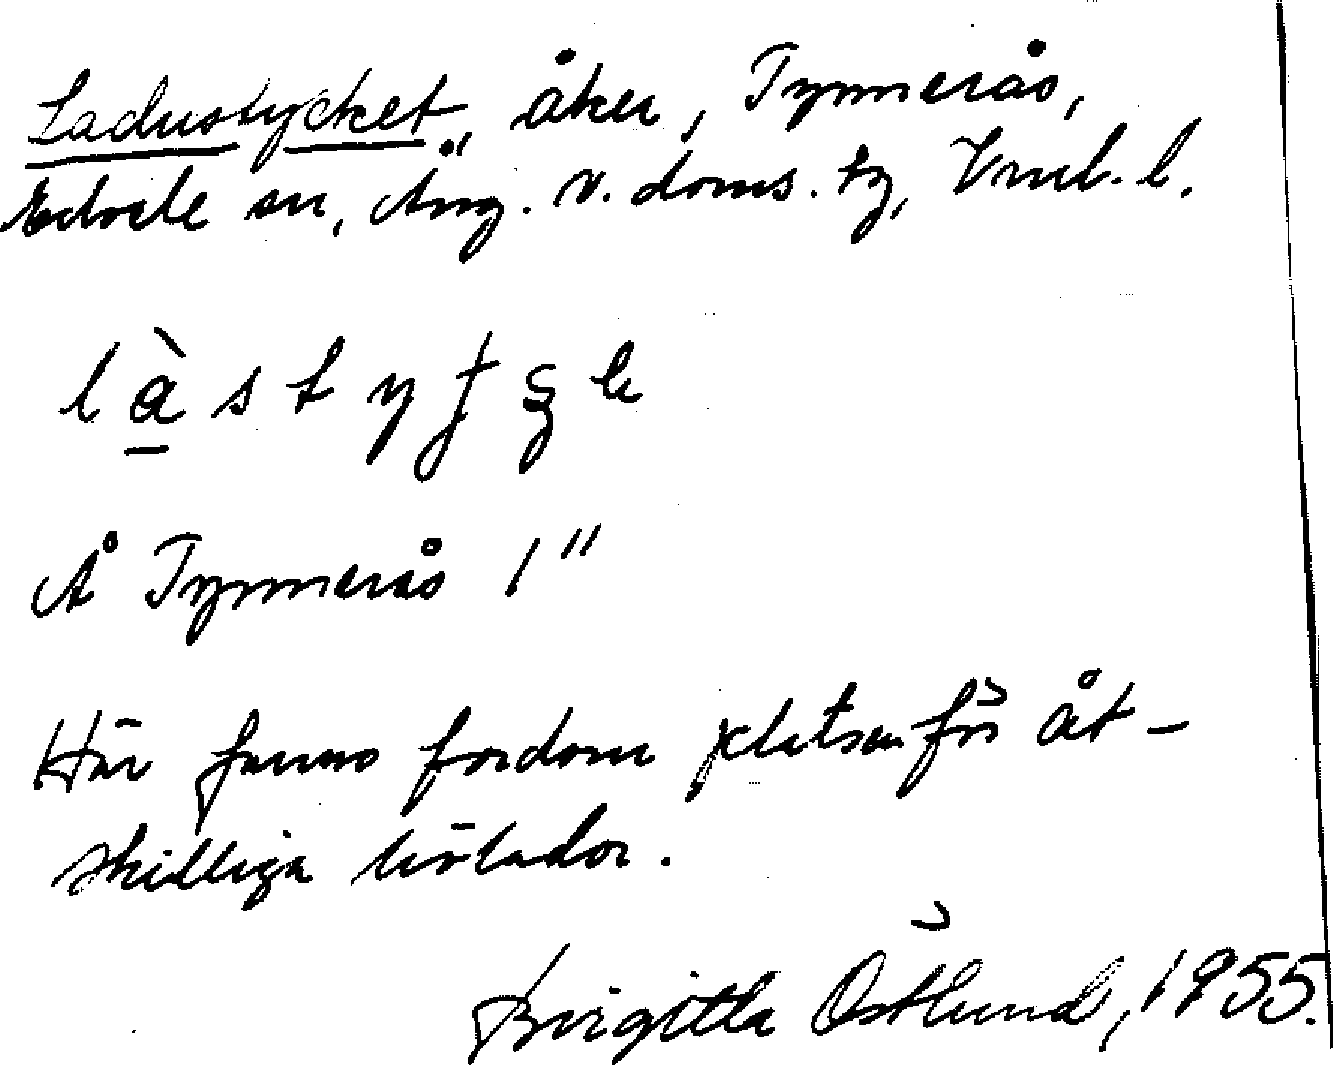 Ladustycket, åker, Tynnerås,
Edsele sn, Ång. v. doms. tg, Vnrl. l.
l à s t y
Å Tynnerås 1"
Här funns fordom platsen för åt-
skilliga hölador.
Birgitta Östlund, 1955.